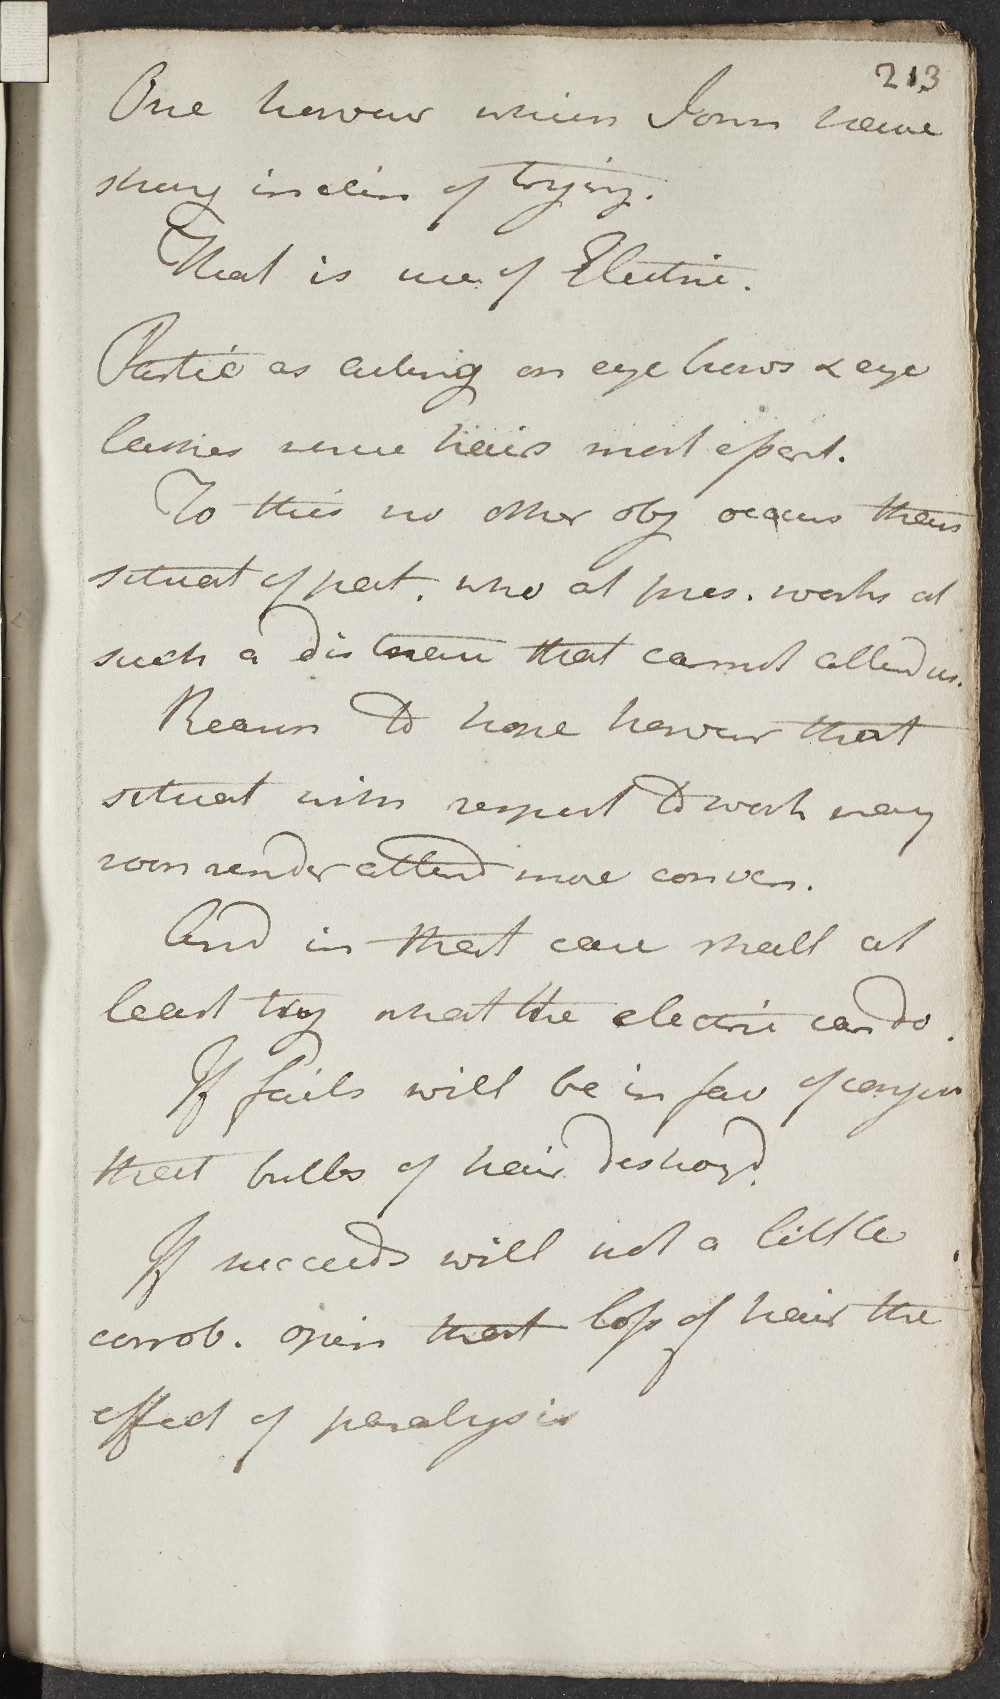 213
One howevr which I own have
strong inclin of trying.
That is use of Electric.
Partic as acting on eye brows & eye
lashes where hairs most apart.
To this no other obj occurs than
situat of pat. who at pres. works at
such a distance that cannot attend us.
Reason to hope howevr that
situat with respect to work may
soon render attend more conven.
And in that case shall at
least try what the electric can do.
If fails will be in fav of conject
that bulbs of hair destroyd.
If succeeds will not a little
corrob. opin that loss of hair the
effect of paralysis